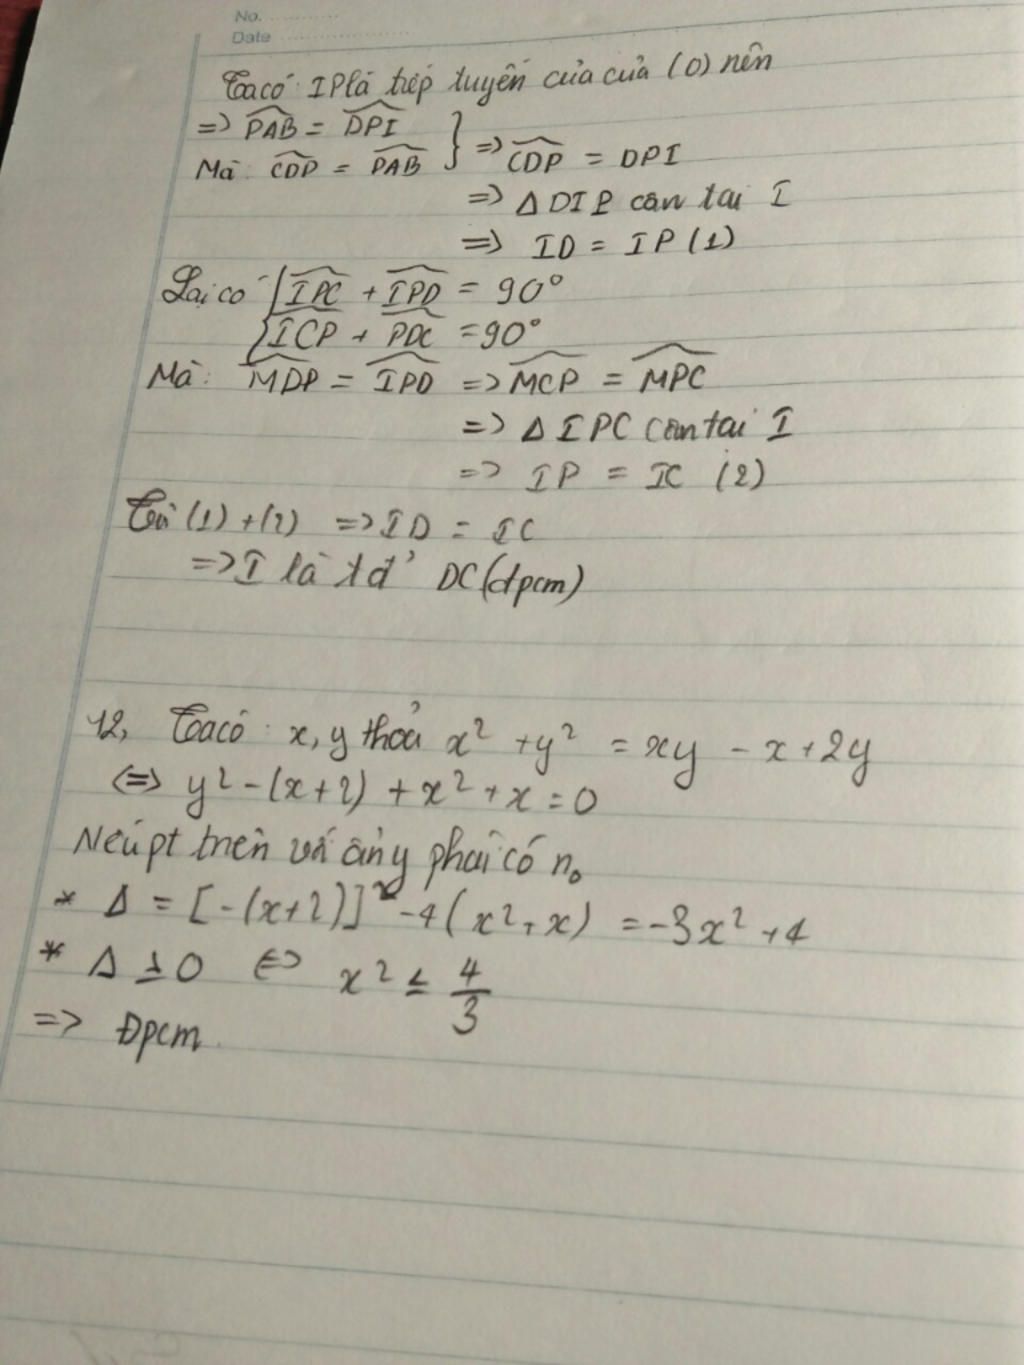 No. ...............
Date ......................
Ta có: IP là tiếp tuyến của của (O) nên
=> PAB = DPI
Mà: CDP = PAB } => CDP = DPI
=> Δ DIP cân tại I
=> ID = IP (1)
Lại có { IPC + IPD = 90°
ICP + PDC = 90°
Mà: MDP = IPD => MCP = MPC
=> Δ IPC cân tại I
=> IP = IC (2)
Từ (1) + (2) => ID = IC
=> I là tđ' DC (đpcm)
12, Ta có: x, y thỏa x² + y² = xy - x + 2y
<=> y² - (x+2) + x² + x = 0
Nếu pt trên với ẩn y phải có n₀
* Δ = [-(x+2)]² - 4(x² + x) = -3x² + 4
* Δ ≥ 0 <=> x² ≤ 4/3
=> Đpcm.